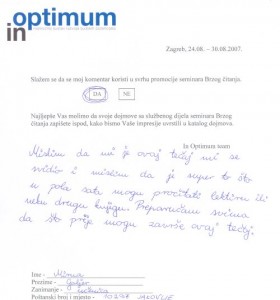 optimum
in
Zagreb, 24.08. – 30.08.2007.
Slažem se da se moj komentar koristi u svrhu promocije seminara Brzog čitanja.
DA NE
Najljepše Vas molimo da svoje dojmove sa službenog dijela seminara Brzog
čitanja zapišete ispod, kako bismo Vaše impresije uvrstili u katalog dojmova.
In Optimum team
Mislim da mi je ovaj tečaj mi se
svidio i mislim da je super to što
u pola sata mogu pročitati lektiru ili
neku drugu knjigu. Preporučam svima
da što prije mogu završe ovaj tečaj.
Ime -
Prezime -
Zanimanje - učenica
Poštanski broj i mjesto - 10298